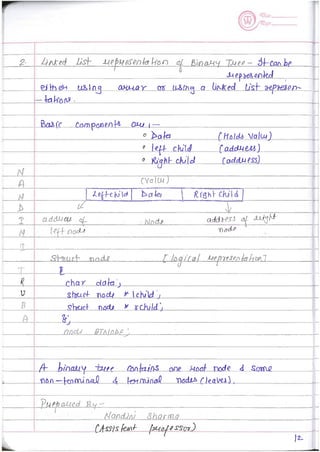 2. Linked list representation of Binary Tree - It can be
represented
either using array or using a linked list represen-
- tations.
Basic components are :-
o Data (Holds Value)
o left child (address)
o Right child (address)
(Value)
Left child Data Right Child
address of Node address of right
left node node
Struct node [logical representation]
{
char data;
struct node *lchild;
struct node *rchild;
};
node BTNode;
A binary tree contains one root node & some
non-terminal & terminal nodes (leaves).
Prepared By:-
Nandini Sharma
(Assistant professor)
12